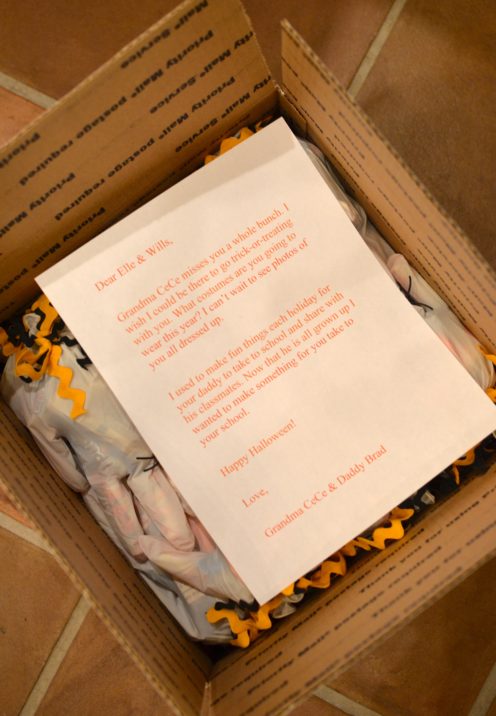 Priority Mail® Service
Priority Mail® postage required
Priority Mail® Service
Priority Mail® postage required
Dear Elle & Wills,
Grandma CeCe misses you a whole bunch. I
wish I could be there to go trick-or-treating
with you. What costumes are you going to
wear this year? I can't wait to see photos of
you all dressed up.
I used to make fun things each holiday for
your daddy to take to school and share with
his classmates. Now that he is all grown up I
wanted to make something for you take to
your school.
Happy Halloween!
Love,
Grandma CeCe & Daddy Brad